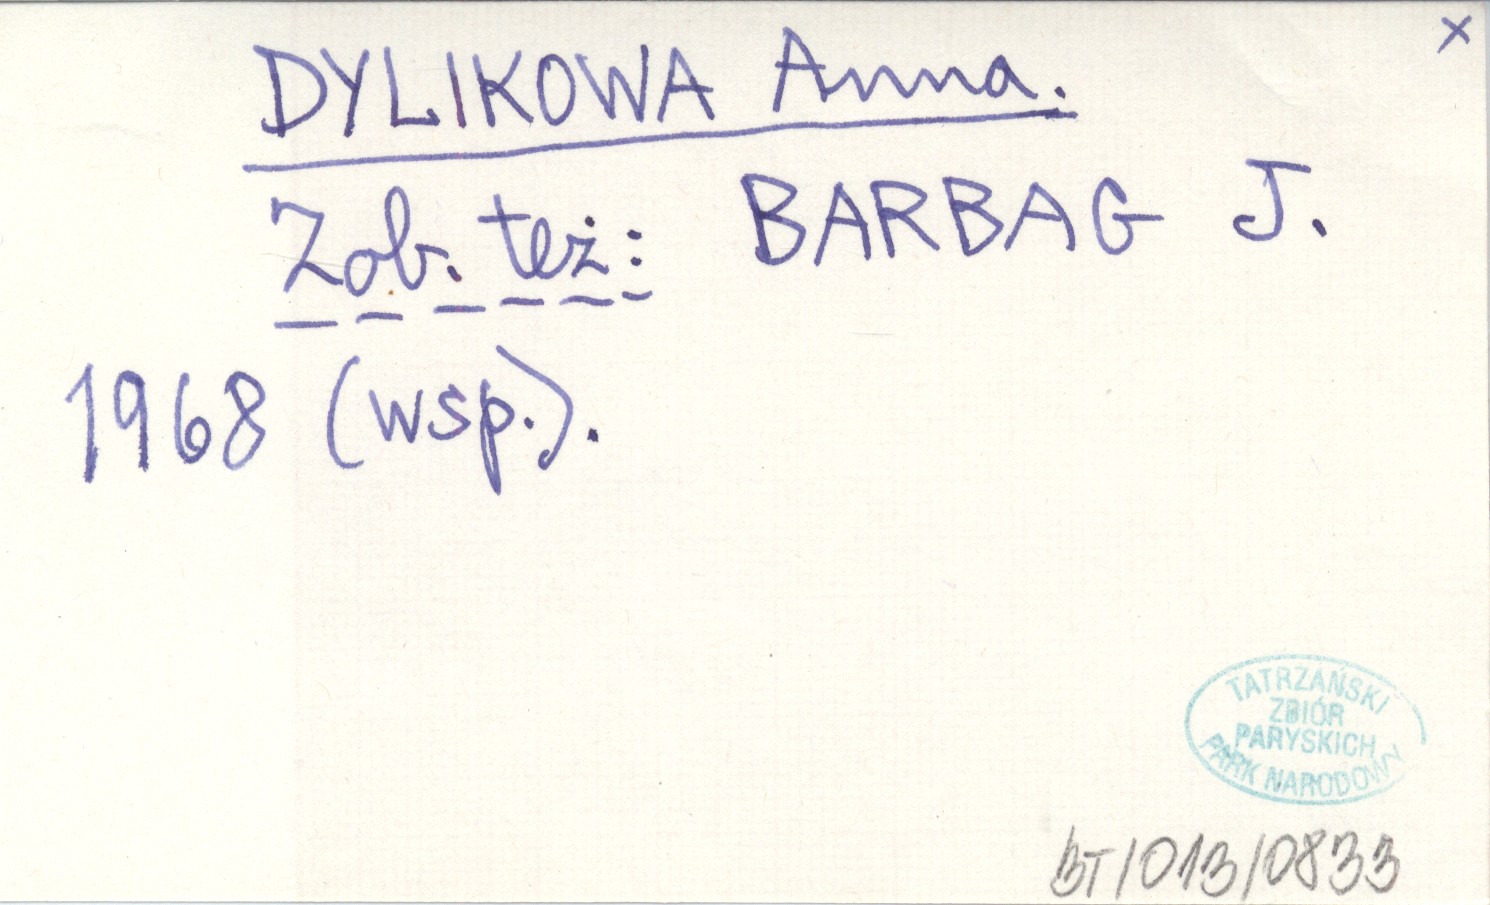 x
DYLIKOWA Anna.
Zob. też: BARBAG J.
1968 (wsp.).
TATRZAŃSKI
ZBIÓR
PARYSKICH
PARK NARODOWY
BT/013/0833